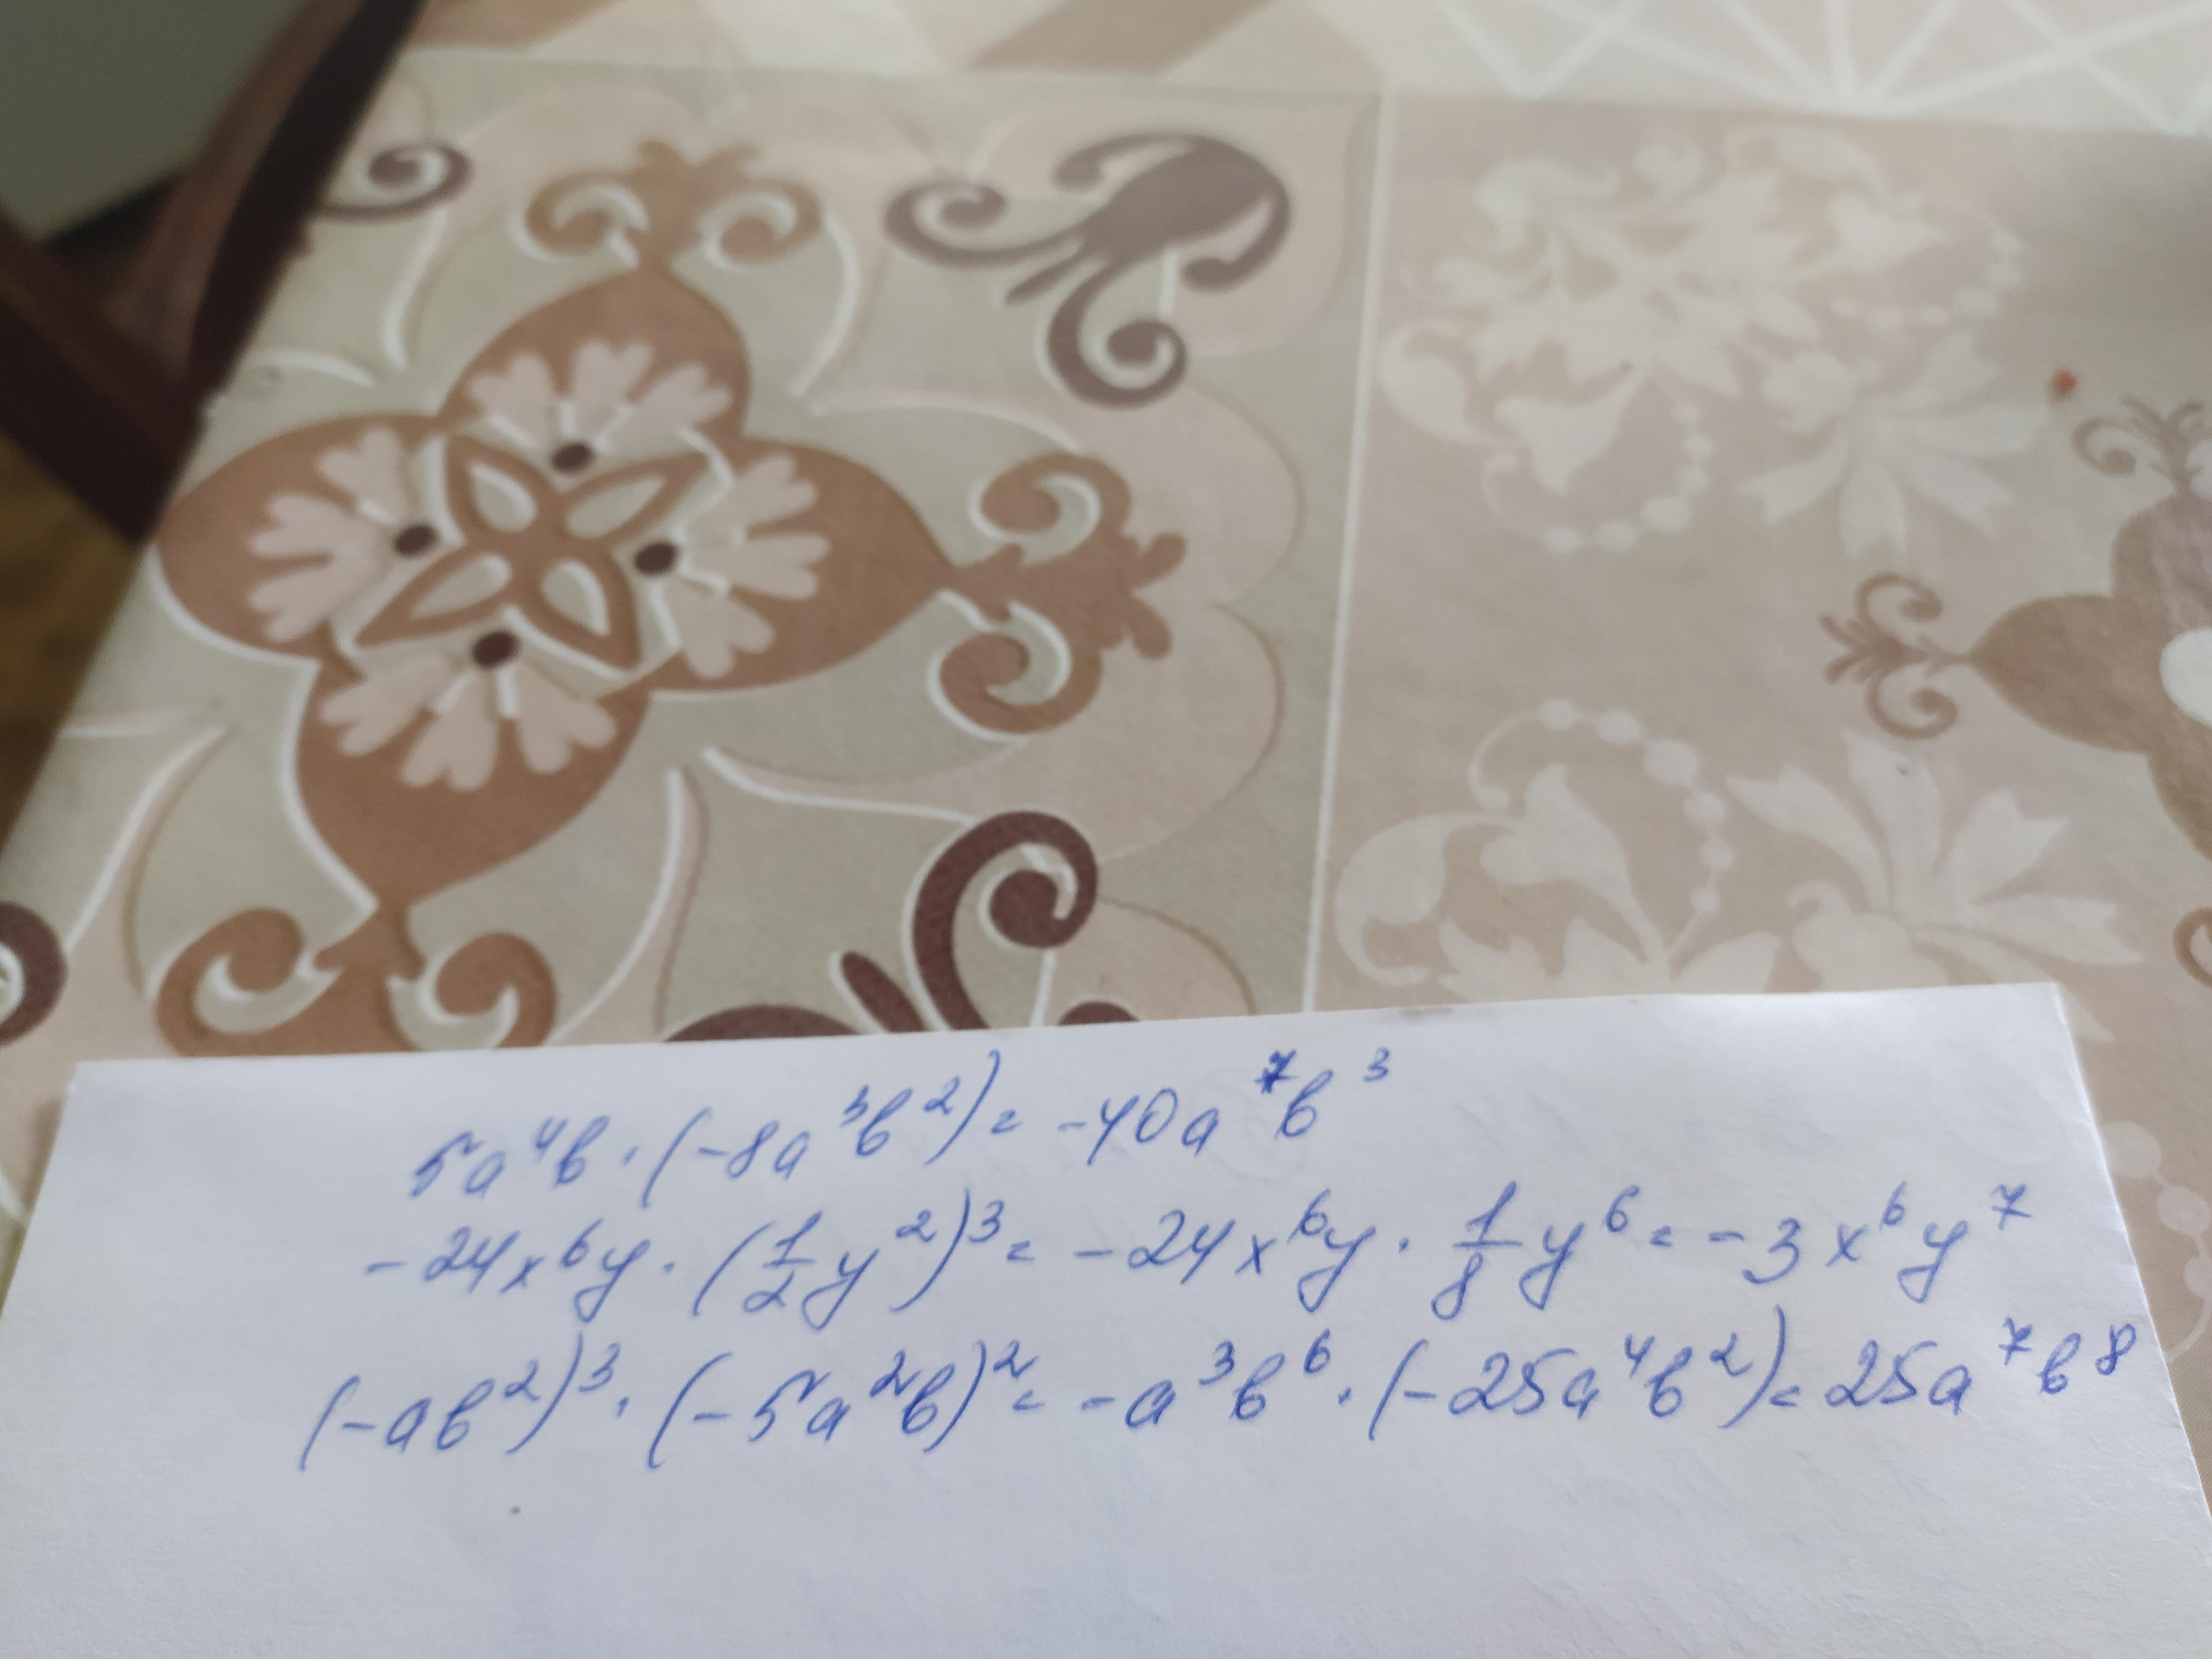 5a⁴b · (-8a³b²) = -40a⁷b³
-24x⁶y · (1/2 y²)³ = -24x⁶y · 1/8 y⁶ = -3x⁶y⁷
(-ab²)³ · (-5a²b)² = -a³b⁶ · (-25a⁴b²) = 25a⁷b⁸